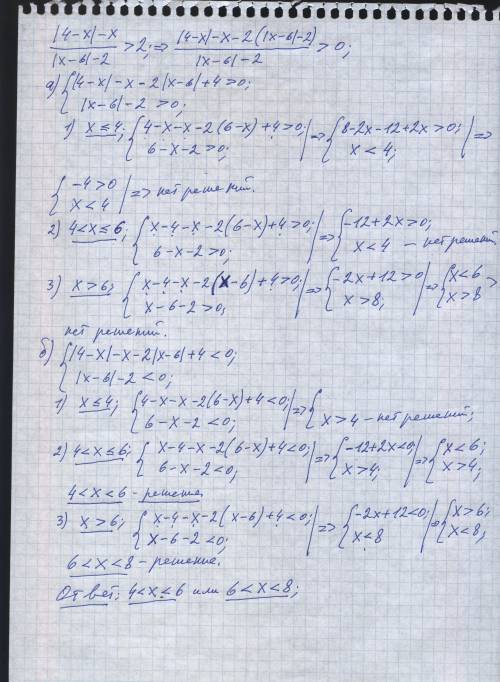 |4-x|-x / |x-6|-2 > 2; => |4-x|-x-2(|x-6|-2) / |x-6|-2 > 0;
а) { |4-x|-x-2|x-6|+4>0;
|x-6|-2>0;
1) x≤4; { 4-x-x-2(6-x)+4>0; | => { 8-2x-12+2x>0; | =>
6-x-2>0; x<4;
{ -4>0 | => нет решений.
x<4
2) 4<x≤6; { x-4-x-2(6-x)+4>0; | => { -12+2x>0;
6-x-2>0; x<4 - нет решений
3) x>6; { x-4-x-2(x-6)+4>0; | => { -2x+12>0 | => { x<6 >
x-6-2>0; x>8; x>8
нет решений.
б) { |4-x|-x-2|x-6|+4<0;
|x-6|-2<0;
1) x≤4; { 4-x-x-2(6-x)+4<0; | => {
6-x-2<0; x>4 - нет решений;
2) 4<x≤6; { x-4-x-2(6-x)+4<0; | => { -12+2x<0; | => { x<6;
6-x-2<0; x>4; x>4;
4<x<6 - решение.
3) x>6; { x-4-x-2(x-6)+4<0; | => { -2x+12<0; | => { x>6;
x-6-2<0; x<8 x<8;
6<x<8 - решение.
Ответ: 4<x<6 или 6<x<8;